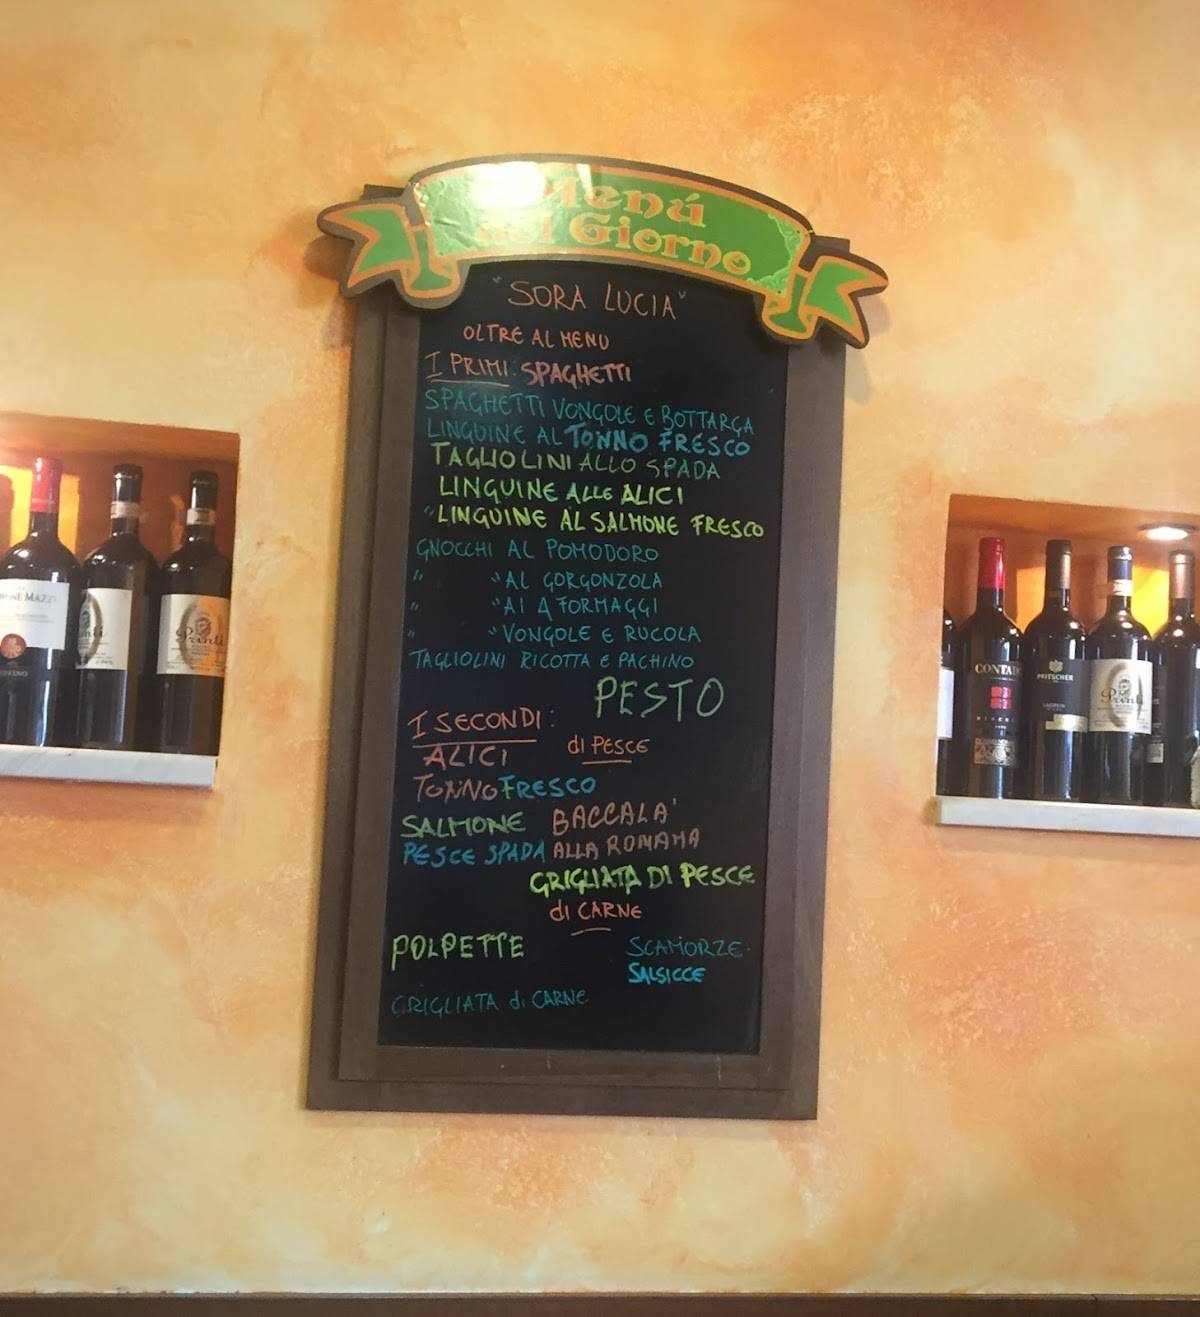 Menú
del Giorno
"SORA LUCIA"
OLTRE AL MENU
I PRIMI: SPAGHETTI
SPAGHETTI VONGOLE E BOTTARGA
LINGUINE AL TONNO FRESCO
TAGLIOLINI ALLO SPADA
LINGUINE ALLE ALICI
"LINGUINE AL SALMONE FRESCO
GNOCCHI AL POMODORO
" "AL GORGONZOLA
" "AI 4 FORMAGGI
" "VONGOLE E RUCOLA
TAGLIOLINI RICOTTA E PACHINO
PESTO
I SECONDI:
di PESCE
ALICI
TONNO FRESCO
SALMONE BACCALA'
PESCE SPADA ALLA ROMANA
GRIGLIATA DI PESCE
di CARNE
POLPETTE SCAMORZE
SALSICCE
GRIGLIATA di CARNE
Printi
Printi
CONTADO
PFITSCHER
LAGREIN
Printi